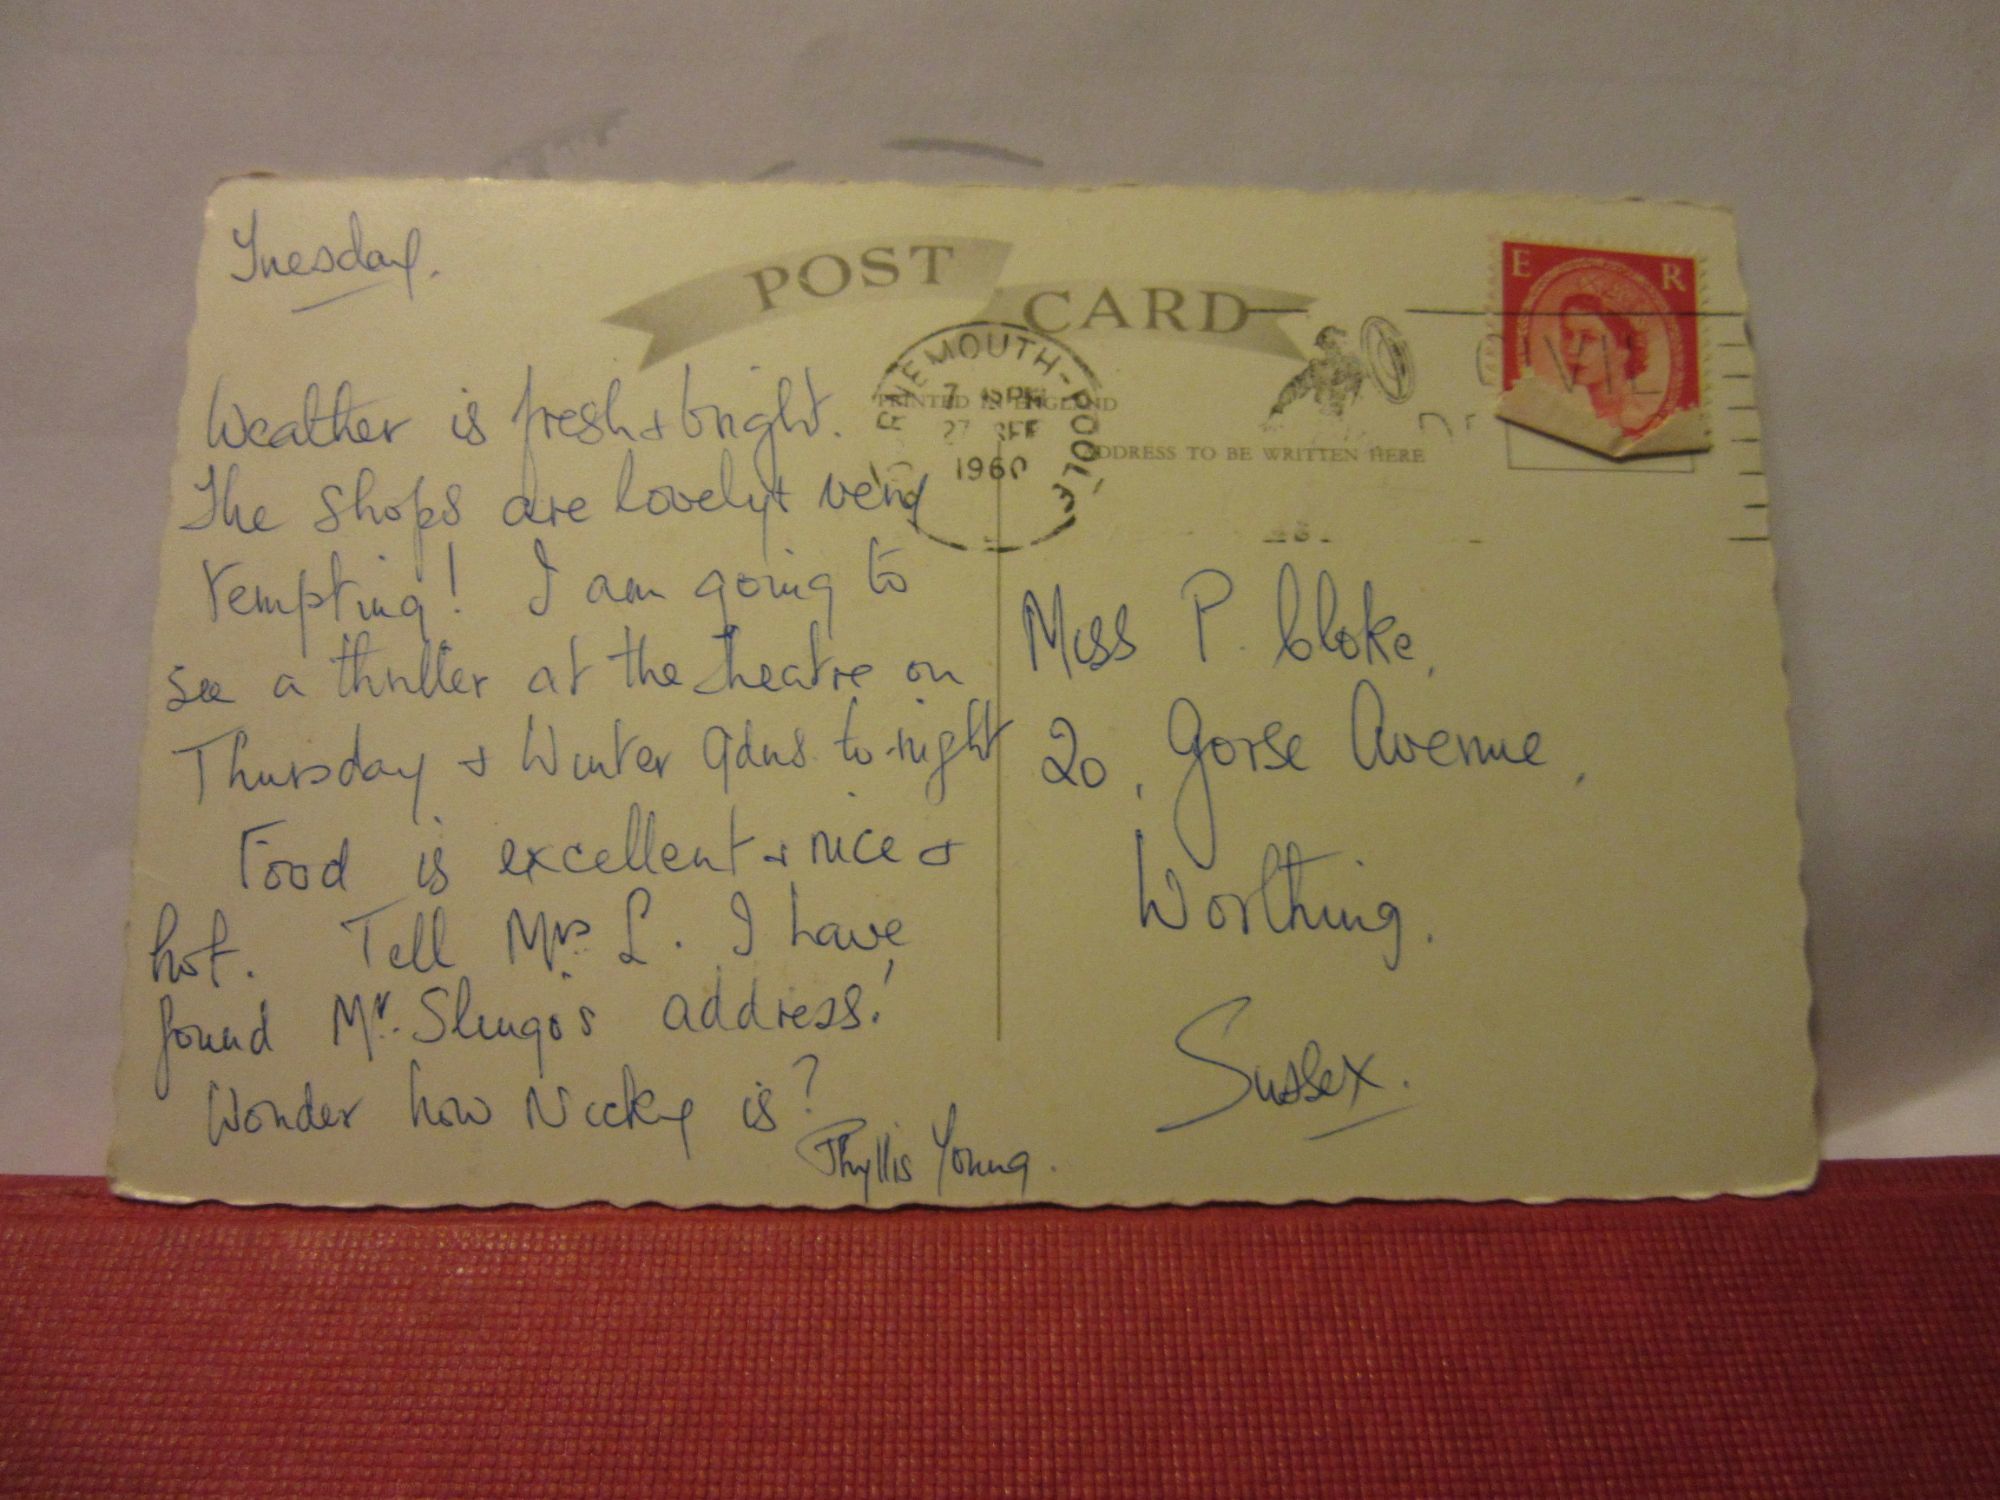 Tuesday.
POST
CARD
E R
RNEMOUTH-POOLE
7
27 SEP
1960
PRINTED IN ENGLAND
CIVIL
ADDRESS TO BE WRITTEN HERE
Weather is fresh & bright.
The shops are lovely & very
tempting! I am going to
see a thriller at the theatre on
Thursday & Winter Gdns to-night
Food is excellent & nice &
hot. Tell Mrs L. I have
found Mr. address!
Wonder how Nicky is?
Phyllis Young.
Miss P. Cloke,
20, Gorse Avenue,
Worthing.
Sussex.